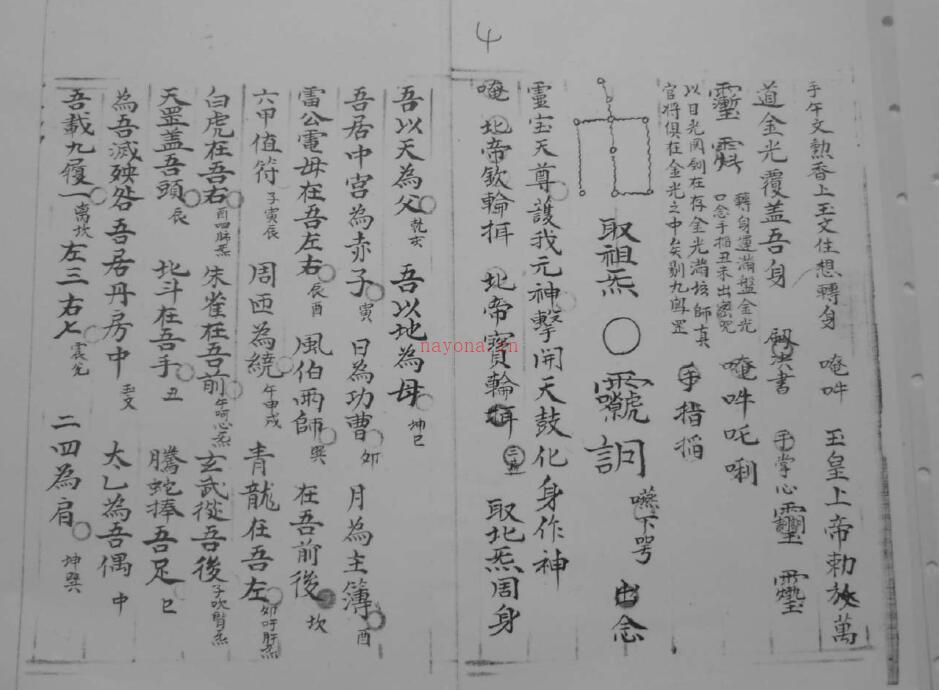 4
手午文熏香上玉文住想轉身 唵吽 玉皇上帝勅放萬
道金光覆盖吾身 手掌心
轉身運滿盤金光
口念手指丑未出密咒 唵吽吒唎
以日光罔剑在存金光滿坛師真
官将俱在金光之中矣剔九鳳罡 手指稲
取祖炁 ○ 嚥下咢 出念
靈宝天尊護我元神擊開天鼓化身作神
唵 北帝欽輪揖 北帝寶輪揖 取北炁周身
吾以天為父 乾亥 吾以地為母 坤巳
吾居中宮為赤子 寅 日為功曹 卯 月為主簿 酉
雷公電母在吾左右 辰酉 風伯雨師 巽 在吾前後 坎
六甲值符 子寅辰 周匝為繞 午申戌 青龍在吾左 卯吁肝炁
白虎在吾右 酉呬肺炁 朱雀在吾前 午呵心炁 玄武從吾後 子吹腎炁
天罡盖吾頭 辰 北斗在吾手 丑 騰蛇捧吾足 巳
為吾滅殃咎吾居丹房中 玉文 太乙為吾偶 中
吾載九履一 离坎 左三右七 震兌 二四為肩 坤巽
nayona.cn